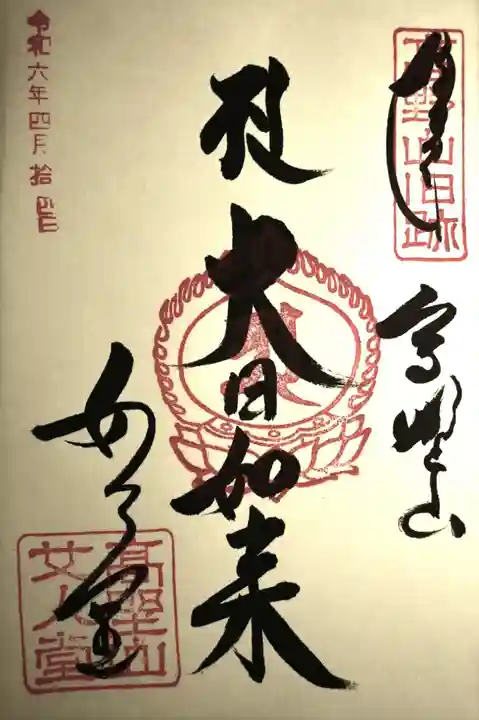 奉拝
高野山旧跡
高野山
大日如来
女人堂
高野山
女人堂
令和六年四月拾四日